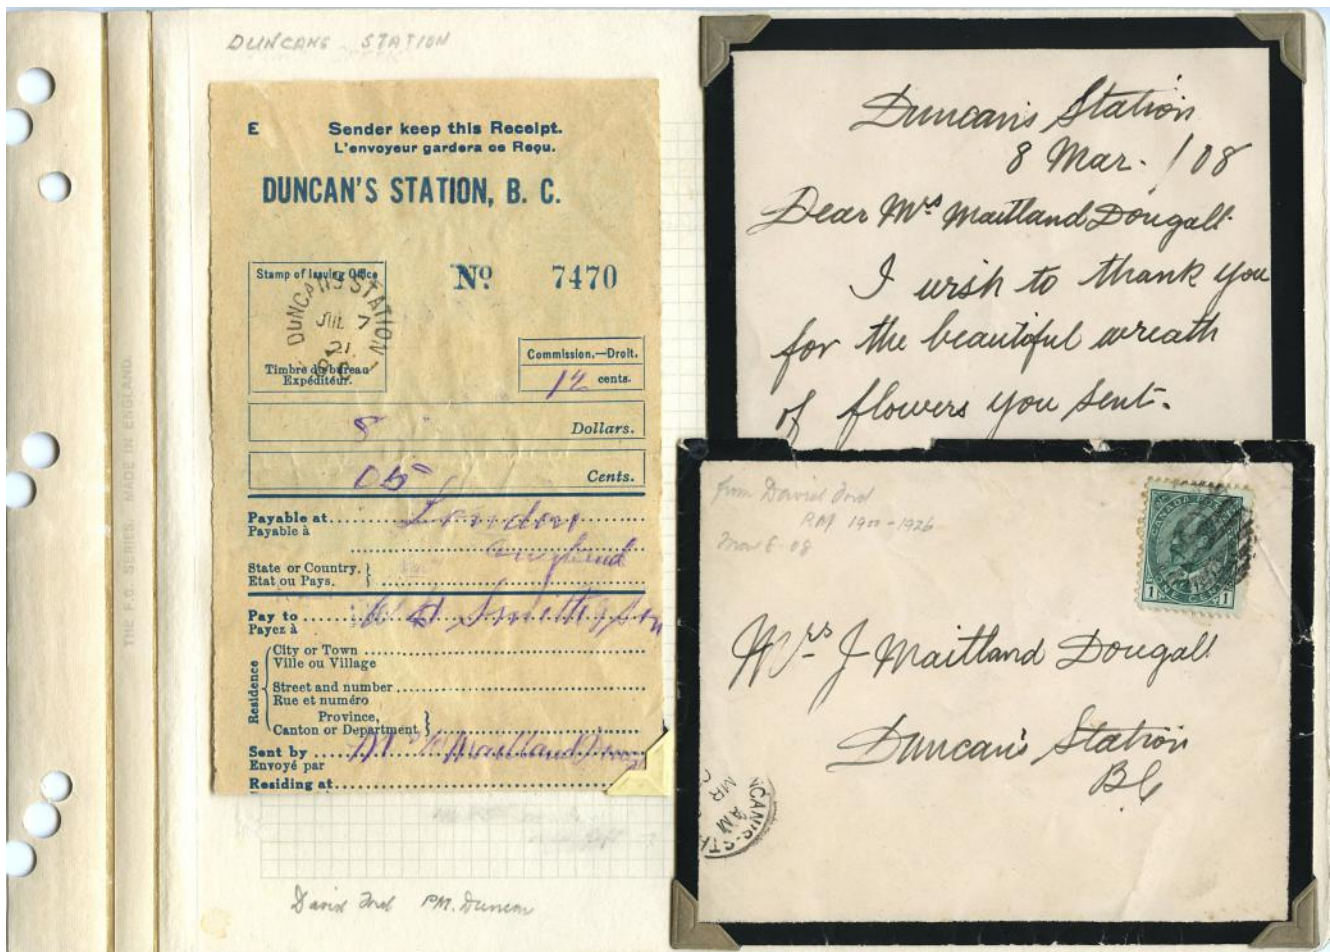 DUNCANS STATION
E Sender keep this Receipt.
L'envoyeur gardera ce Reçu.
DUNCAN'S STATION, B. C.
Stamp of Issuing Office
No 7470
DUNCAN'S STATION
JUL 7
21
B.C.
Timbre du bureau
Expéditeur.
Commission.—Droit.
12 cents.
5 Dollars.
05 Cents.
Payable at London
Payable à
England
State or Country.
Etat ou Pays.
Pay to W H Smith & Son
Payez à
Residence
City or Town
Ville ou Village
Street and number
Rue et numéro
Province,
Canton or Department
Sent by Maitland
Envoyé par
Residing at
David Ford PM. Duncan
THE F.G. SERIES. MADE IN ENGLAND.
Duncan's Station
8 Mar. / 08
Dear Mrs Maitland Dougall.
I wish to thank you
for the beautiful wreath
of flowers you sent.
from David Ford
PM 1900-1926
Mar 8-08
CANADA POSTAGE
1 1
Mrs J Maitland Dougall
Duncan's Station
BC
NCAN'S-STA
AM
MR